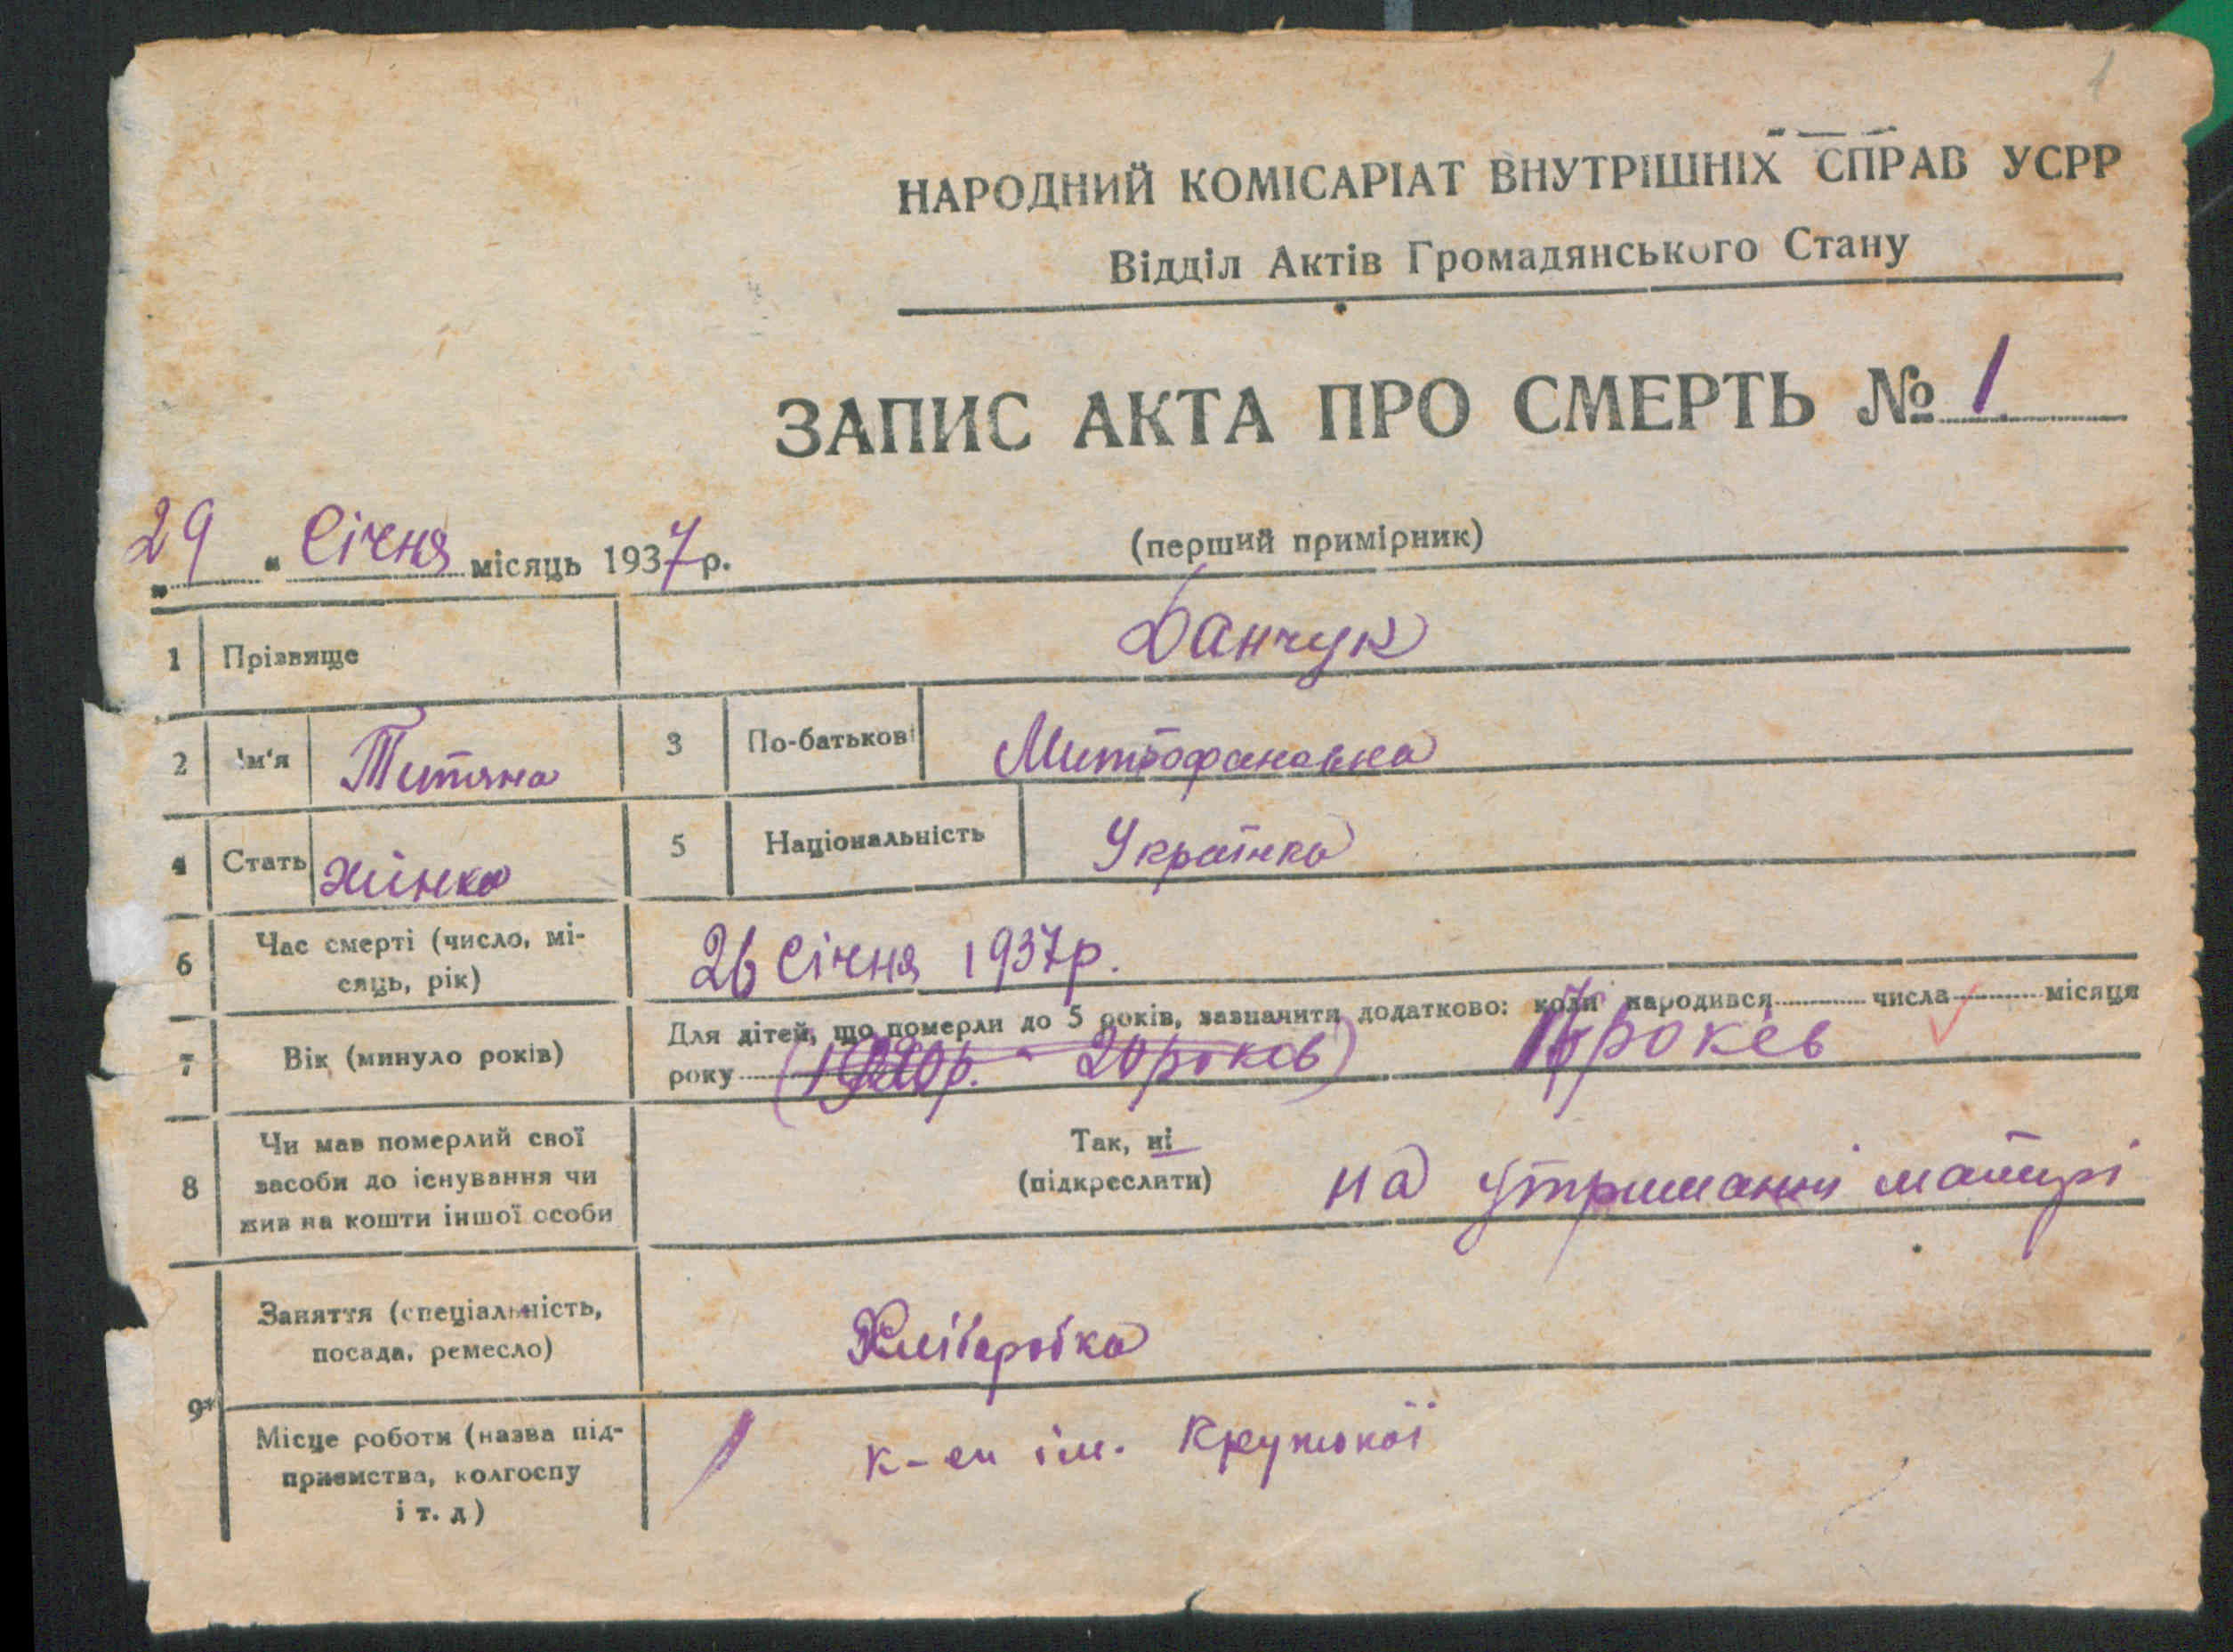 1
НАРОДНИЙ КОМІСАРІАТ ВНУТРІШНІХ СПРАВ УСРР
Відділ Актів Громадянського Стану
ЗАПИС АКТА ПРО СМЕРТЬ № 1
„29“ Січня місяць 1937 р.
(перший примірник)
1 Прізвище Данчук
2 Ім'я Титяна 3 По-батькові Митрофановна
4 Стать жінка 5 Національність Українка
6 Час смерті (число, мі-
сяць, рік) 26 Січня 1937р.
7 Вік (минуло років) Для дітей, що померли до 5 років, зазначити додатково: коли народився числа місяця
року 20 років років
8 Чи мав померлий свої
засоби до існування чи
жив на кошти іншої особи
Так, ні
(підкреслити) на утриманні матирі
9* Заняття (спеціальність,
посада, ремесло) Хліборобка
Місце роботи (назва під-
приємства, колгоспу
і т. д) к-еп ім.